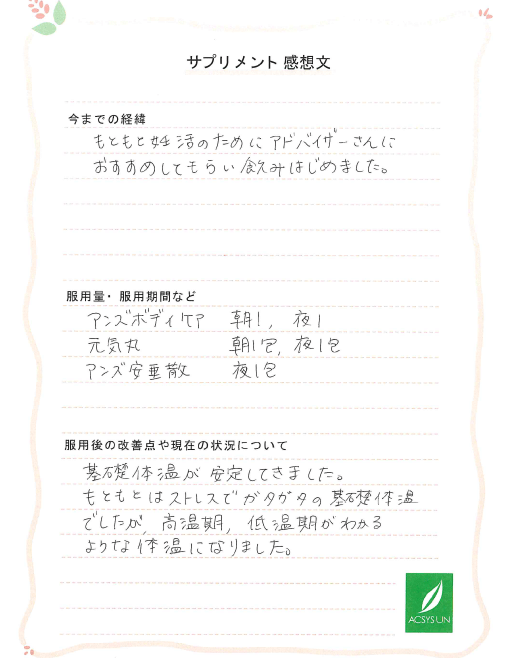 サプリメント 感想文
今までの経緯
もともと妊活のために アドバイザーさんに
おすすめしてもらい飲みはじめました。
服用量・服用期間など
アンズボディケア 朝1, 夜1
元気丸 朝1包, 夜1包
アンズ安垂散 夜1包
服用後の改善点や現在の状況について
基礎体温が安定してきました。
もともとはストレスでガタガタの基礎体温
でしたが, 高温期, 低温期がわかる
ような体温になりました。
ACSYSUN